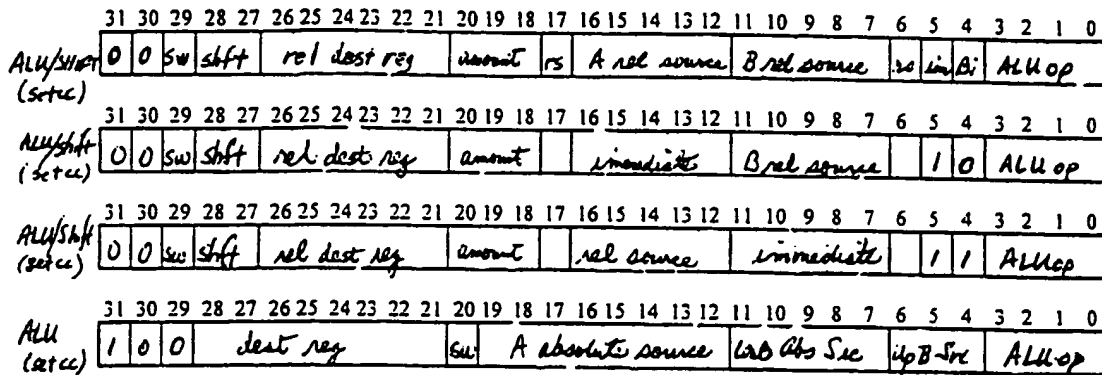 31 30 29 28 27 26 25 24 23 22 21 20 19 18 17 16 15 14 13 12 11 10 9 8 7 6 5 4 3 2 1 0
ALU/SHIFT 0 0 sw shft rel dest reg amount rs A rel source B rel source im Bi ALU op
(setcc)
31 30 29 28 27 26 25 24 23 22 21 20 19 18 17 16 15 14 13 12 11 10 9 8 7 6 5 4 3 2 1 0
ALU/Shft 0 0 sw shft rel dest reg amount immediate B rel source 1 0 ALU op
(setcc)
31 30 29 28 27 26 25 24 23 22 21 20 19 18 17 16 15 14 13 12 11 10 9 8 7 6 5 4 3 2 1 0
ALU/Shft 0 0 sw shft rel dest reg amount rel source immediate 1 1 ALU op
(setcc)
31 30 29 28 27 26 25 24 23 22 21 20 19 18 17 16 15 14 13 12 11 10 9 8 7 6 5 4 3 2 1 0
ALU 1 0 0 dest reg sw A absolute source B Abs Src B Src ALU op
(setcc)